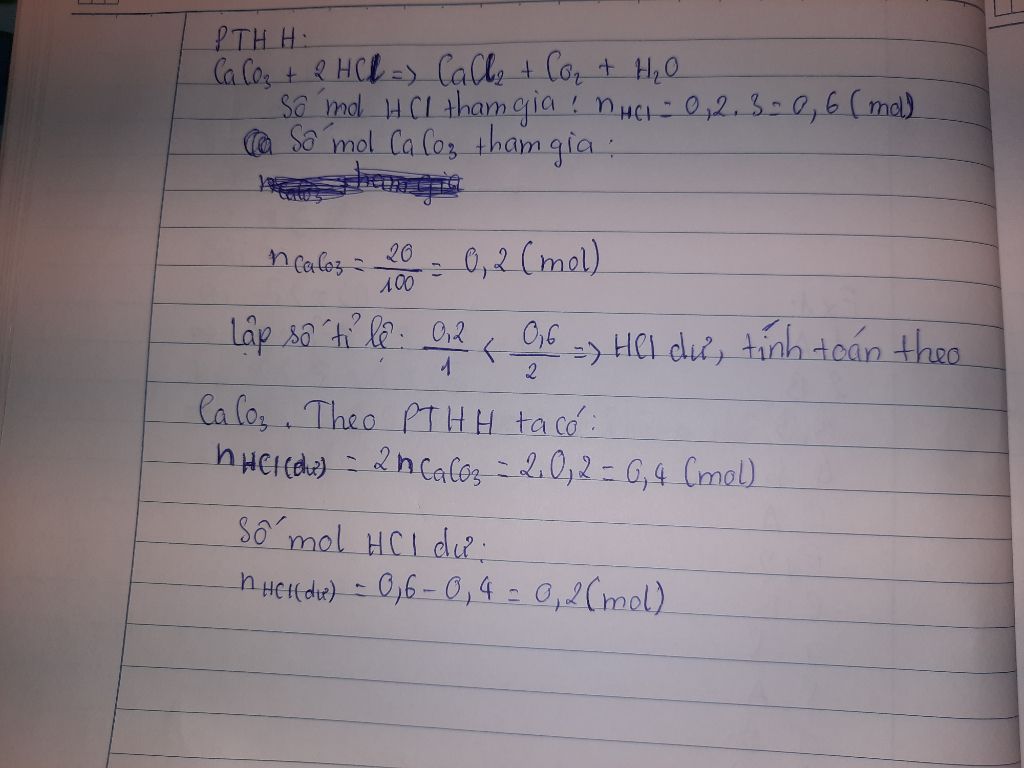 PTHH:
CaCo₃ + 2HCl => CaCl₂ + Co₂ + H₂O
Số mol HCl tham gia: nHCl = 0,2.3 = 0,6 (mol)
Số mol CaCo₃ tham gia:
nCaCo₃ = 20/100 = 0,2 (mol)
Lập số tỉ lệ: 0,2/1 < 0,6/2 => HCl dư, tính toán theo
CaCo₃. Theo PTHH ta có:
nHCl(dư) = 2nCaCo₃ = 2.0,2 = 0,4 (mol)
Số mol HCl dư:
nHCl(dư) = 0,6 - 0,4 = 0,2 (mol)